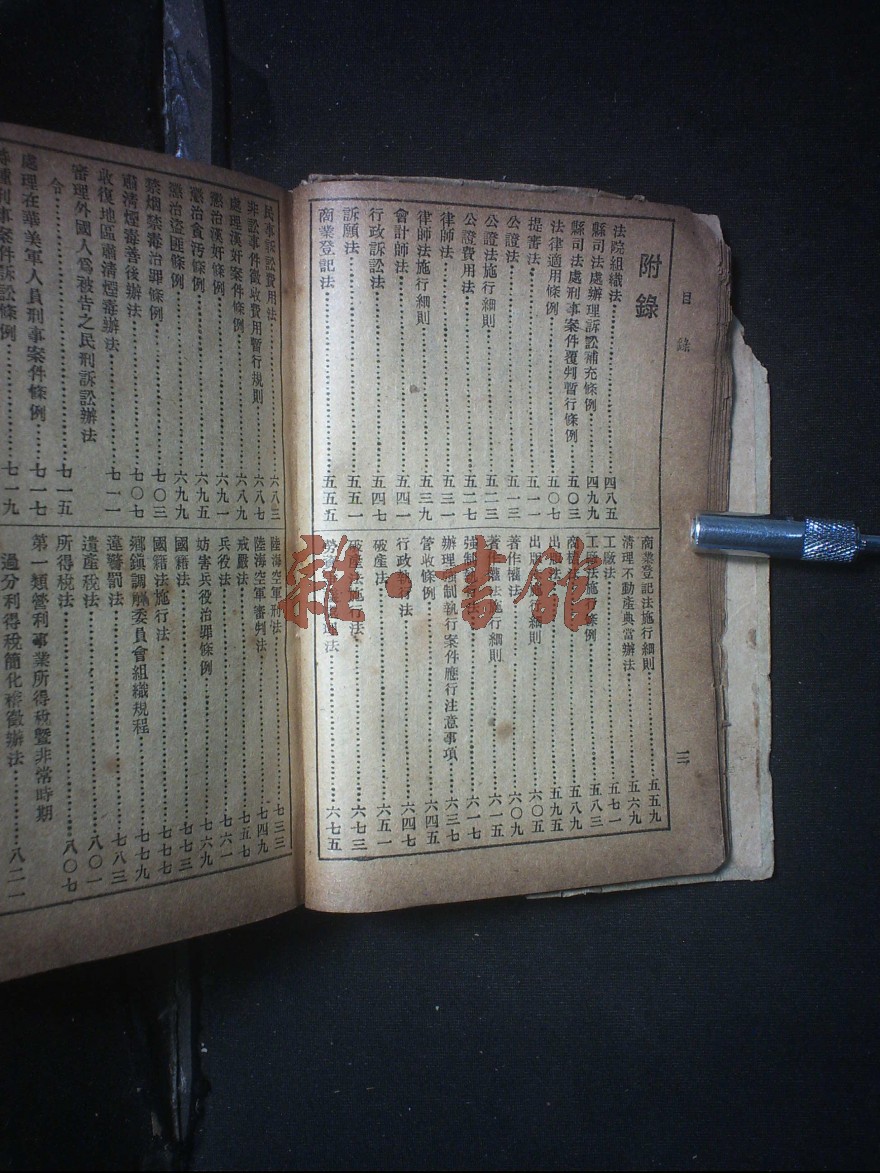 目錄
附錄
法院組織法 四八五
縣司法處辦理訴訟補充條例 四九九
縣司法處刑事案件覆判暫行條例 五〇三
法律適用條例 五〇七
提審法 五一一
公證法 五一三
公證法施行細則 五二三
公證費用法 五二七
律師法 五三一
律師法施行細則 五三九
會計師法 五四一
行政訴訟法 五四七
訴願法 五五一
商業登記法 五五五
商業登記法施行細則 五五九
清理不動產典當辦法 五六九
工廠法 五七一
工廠法施行條例 五八三
商標法 五八九
出版法 五九五
出版法施行細則 六〇五
著作權法 六〇九
著作權法施行細則 六一五
強制執行法 六一七
辦理強制執行案件應行注意事項 六三七
管收條例 六四五
行政執行法 六四七
破產法 六五一
破產法施行法 六七三
勞資 法 六七五
三
民事訴訟費用法 六八三
非訟事件徵收費用暫行規則 六八七
處理漢奸案件條例 六八九
懲治漢奸條例 六九一
懲治貪汚條例 六九五
懲治盜匪條例 六九九
禁烟禁毒治罪條例 七〇三
肅清煙毒善後辦法 七〇七
收復地區肅清煙毒辦法 七一一
審理外國人爲被告之民刑訴訟辦法
令 七一五
處理在華美軍人員刑事案件條例 七一七
特種刑事案件訴訟條例 七一九
陸海空軍刑法 七三三
陸海空軍審判法 七四九
戒嚴法 七五七
兵役法 七六一
妨害兵役治罪條例 七六九
國籍法 七七三
國籍法施行法 七七七
鄉鎮調解委員會組織規程 七七九
違警罰法 七八三
遺產稅法 八〇一
所得稅法 八〇七
第一類營利事業所得稅暨非常時期
過分利得稅簡化稽徵辦法 八二一
雜·書館